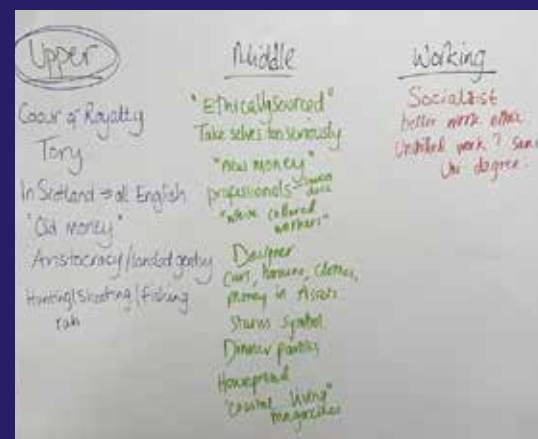 Upper
Colour of Royalty
Tory
In Scotland → all English
"Old money"
Aristocracy/landed gentry
Hunting/shooting/fishing
rah
Middle
"Ethically sourced"
Take selves too seriously
"new money"
professionals
"white collared
workers"
Designer
Cars, houses, clothes,
money in Assets
Status symbol
Dinner parties
Houseproud
"Coastal living"
magazines
Working
Socialist
better work ethic
work ?
Uni degree